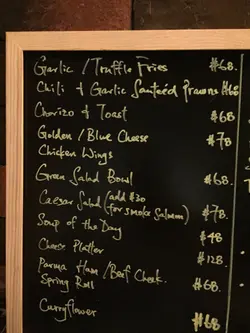 Garlic / Truffle Fries $68.
Chili & Garlic Sauteéd Prawns $68
Chorizo & Toast $68
Golden / Blue Cheese $78
Chicken Wings
Green Salad Bowl $68.
Caesar Salad (add $30 $78.
(for smoke Salmon)
Soup of the Day $48
Cheese Platter $128.
Parma Ham / Beef Cheek. $68.
Spring Roll
Curryflower $68